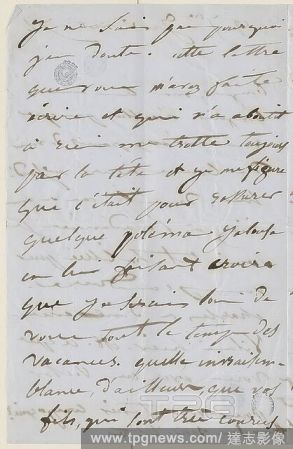 Je ne sais pas pourquoi
j'en doute. cette lettre
que vous m'avez faite
écrire et qui n'a abouti
à rien me trotte toujours
par la tête et je me figure
que c'était pour
quelque jalouse
en lui faisant croire
que je serais loin de
vous tout le temps des
vacances. quelle invraisem-
blance, d'ailleurs que vos
fils, qui sont très
TPG
www.tpgnews.com / 達志影像